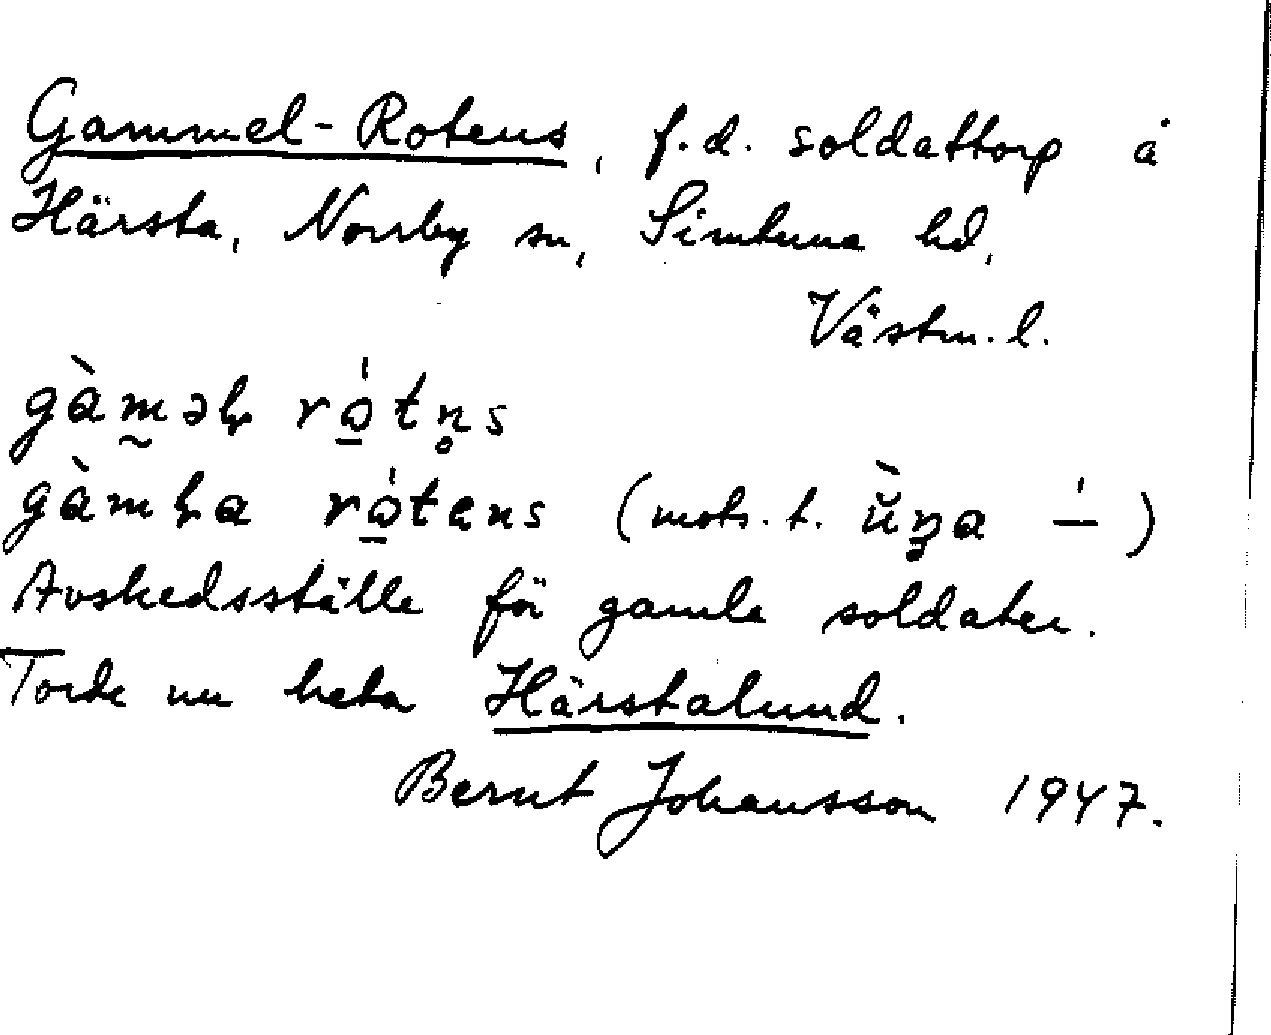 Gammel-Rotens, f.d. soldattorp å
Härsta, Norrby sn, Simtuna hd,
Västm. l.
gàm̰əḷ rǫ̲́tn̥s
gàmḷa rǫ̲́tens (mots. t. ŭ̀n̡a –́ )
Avskedsställe för gamla soldater.
Torde nu heta Härstalund.
Bernt Johansson 1947.